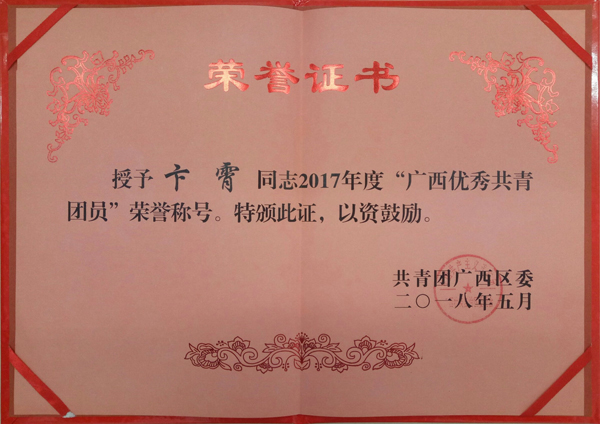 荣誉证书
授予 卞霄 同志2017年度“广西优秀共青
团员”荣誉称号。特颁此证，以资鼓励。
共青团广西区委
二〇一八年五月